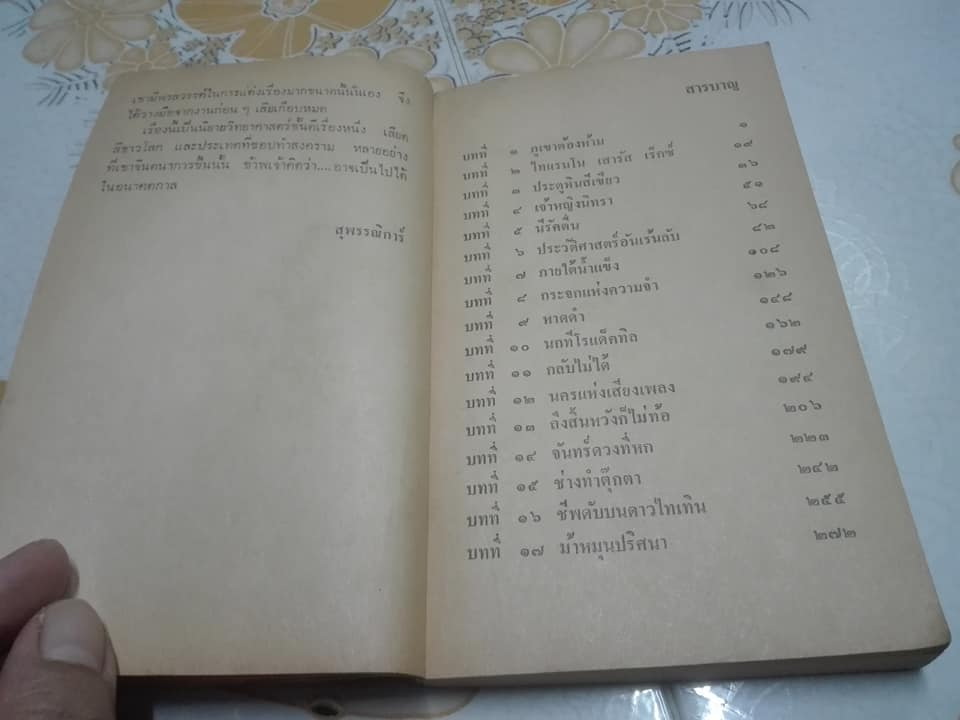 เขามีพรสวรรค์ในการแต่งเรื่องมากขนาดนั้นนั่นเอง จึง
ได้วางมือจากงานก่อน ๆ เสียเกือบหมด
เรื่องนี้เป็นนิยายวิทยาศาสตร์ชั้นดีเรื่องหนึ่ง เสียด
สีชาวโลก และประเทศที่ชอบทำสงคราม หลายอย่าง
ที่เขาจินตนาการขึ้นนั้น ข้าพเจ้าคิดว่า....อาจเป็นไปได้
ในอนาคตกาล
สุพรรณิการ์
สารบาญ
บทที่ ๑ ภูเขาต้องห้าม ๑
บทที่ ๒ ไทแรนโน เสารัส เร็กซ์ ๑๙
บทที่ ๓ ประตูหินสีเขียว ๓๖
บทที่ ๔ เจ้าหญิงนิทรา ๕๑
บทที่ ๕ นีรัคตื่น ๖๘
บทที่ ๖ ประวัติศาสตร์อันเร้นลับ ๘๒
บทที่ ๗ ภายใต้น้ำแข็ง ๑๐๘
บทที่ ๘ กระจกแห่งความจำ ๑๒๖
บทที่ ๙ หาดดำ ๑๔๘
บทที่ ๑๐ นกทีโรแด็คทิล ๑๖๒
บทที่ ๑๑ กลับไม่ได้ ๑๗๙
บทที่ ๑๒ นครแห่งเสียงเพลง ๑๙๔
บทที่ ๑๓ ถึงสิ้นหวังก็ไม่ท้อ ๒๐๖
บทที่ ๑๔ จันทร์ดวงที่หก ๒๒๓
บทที่ ๑๕ ช่างทำตุ๊กตา ๒๔๒
บทที่ ๑๖ ชีพดับบนดาวไทเทิน ๒๕๕
บทที่ ๑๗ ม้าหมุนปริศนา ๒๗๒